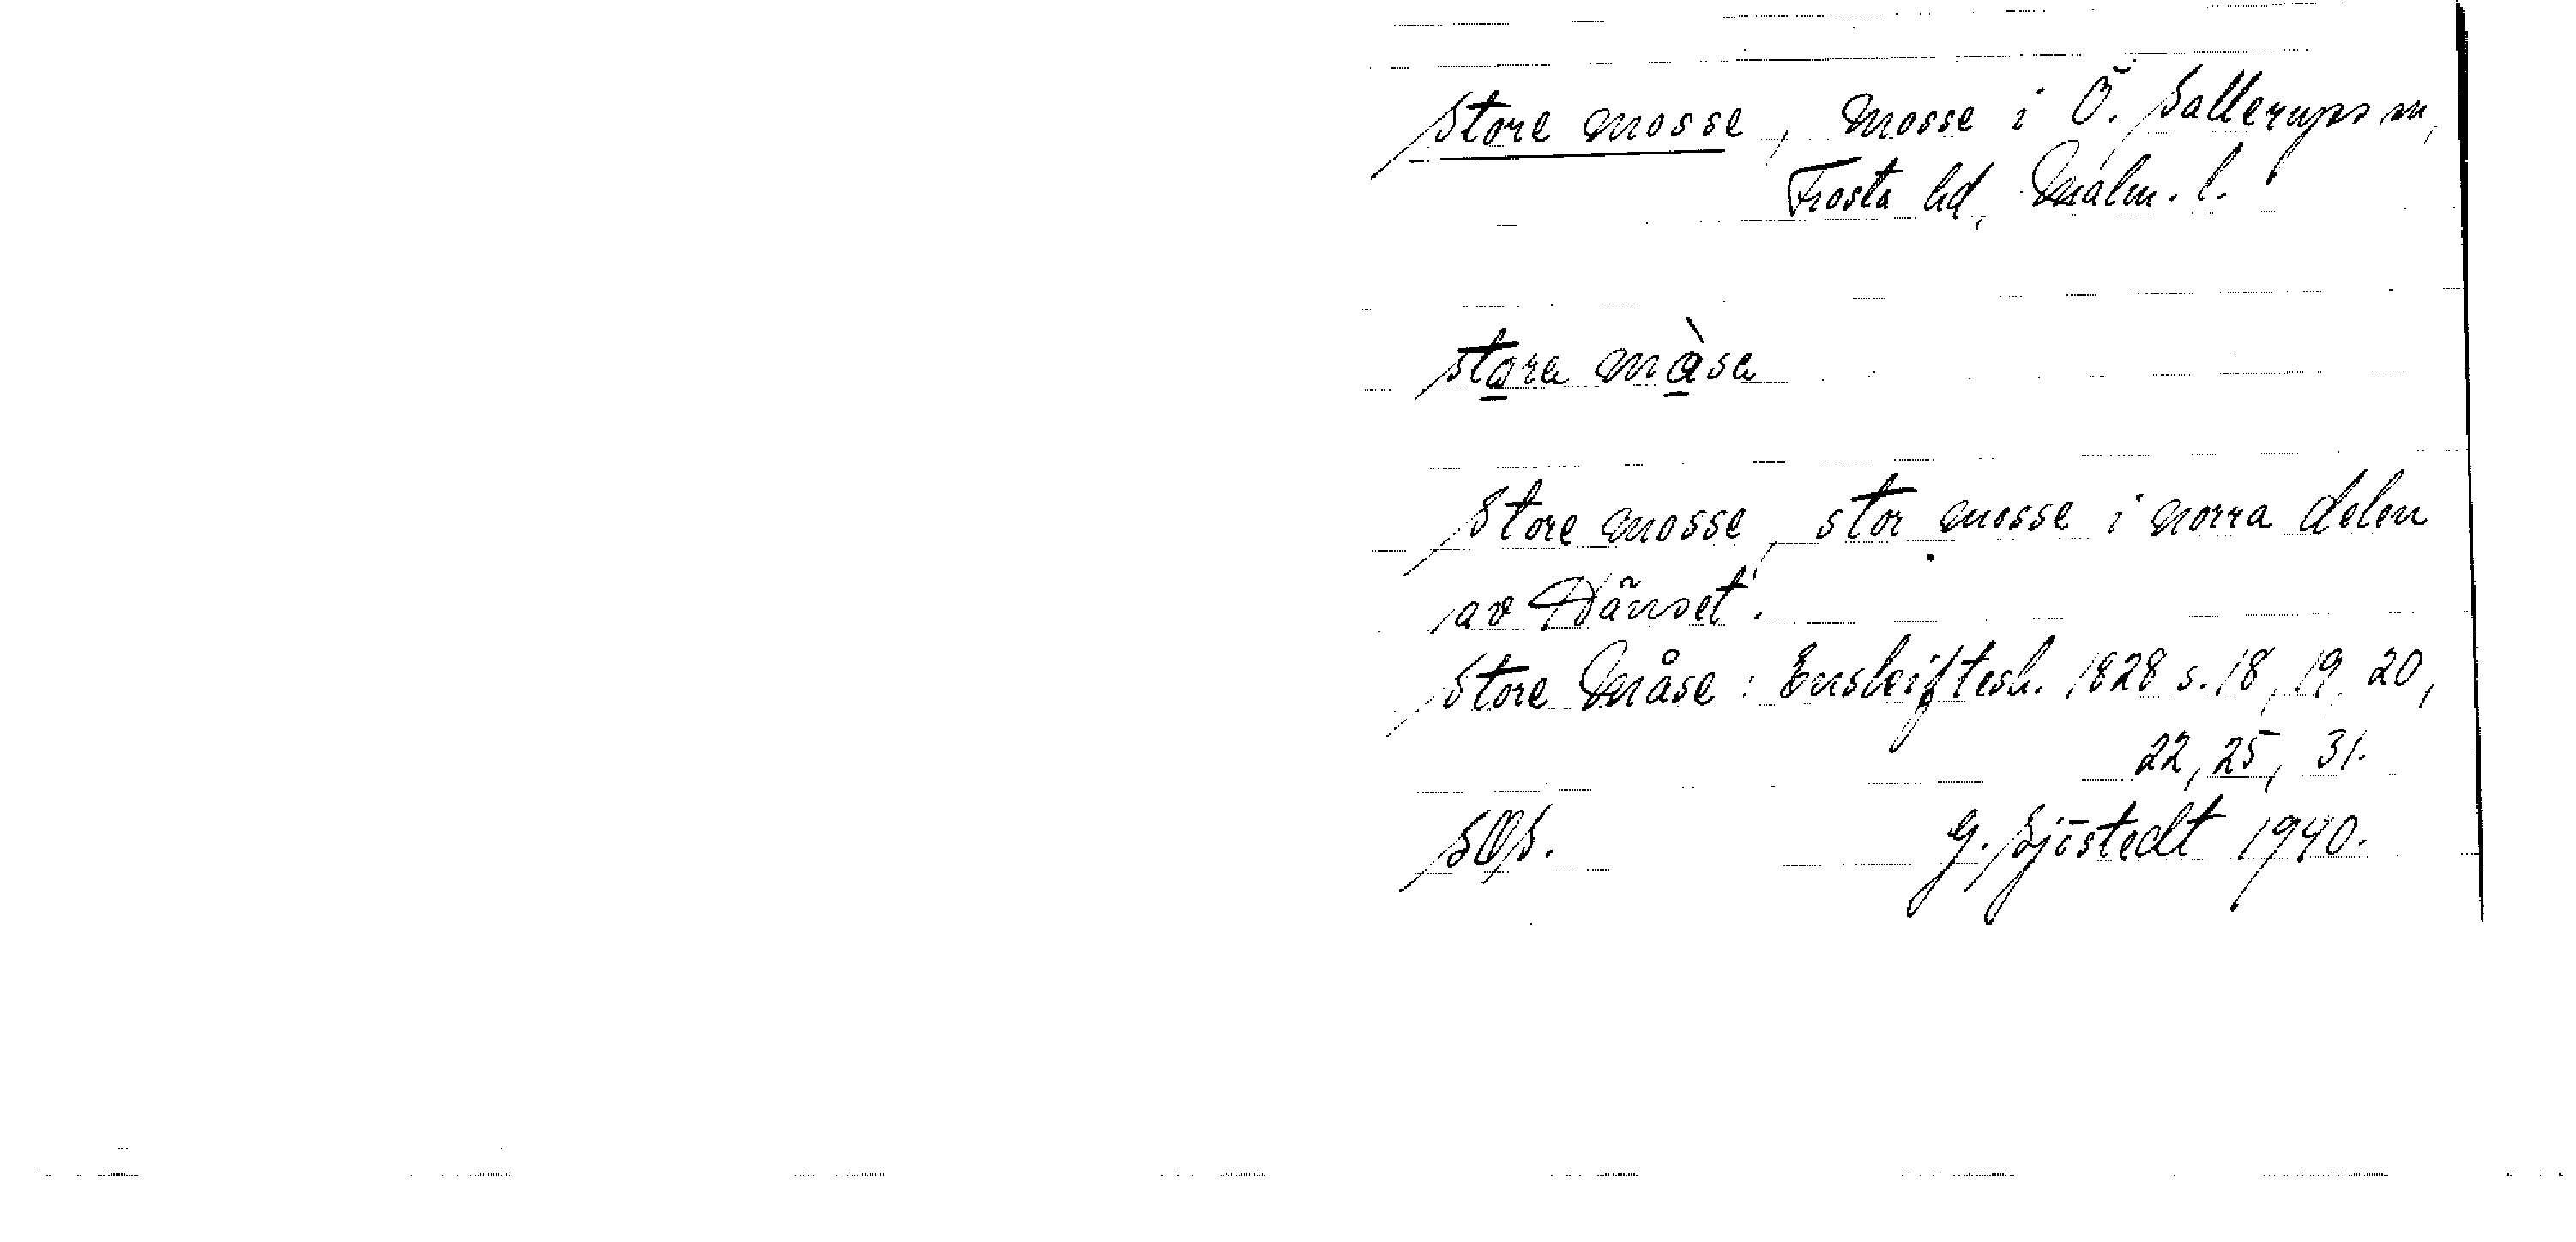 Store mosse, mosse i Ö. Sallerups sn,
Frosta hd, Malm. l.
stora måsa
Store mosse, stor mosse i norra delen
av Hänset.
Store Måse: Enskiftesh. 1828 s. 18, 19, 20,
22, 25, 31.
SOS. G. Sjöstedt 1940.